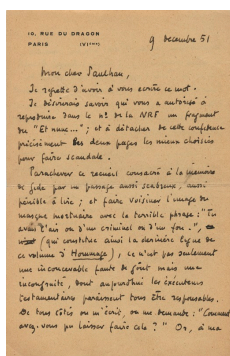 10, RUE DU DRAGON
PARIS (VIème)
9 décembre 51
Mon cher Paulhan,
Je regrette d'avoir à vous écrire ce mot.
Je désirerais savoir qui vous a autorisé à
reproduire dans le n° de la NRF un fragment
du "Et nunc..."; et à détacher de cette confidence
précisément les deux pages les mieux choisies
pour faire scandale.
Parachever ce recueil consacré à la mémoire
de Gide par un passage aussi scabreux, aussi
pénible à lire; et faire voisiner l'image du
masque mortuaire avec la terrible phrase: "Tu
avais l'air ou d'un criminel ou d'un fou.",
(qui constitue ainsi la dernière ligne de
ce volume d'Hommage), ce n'est pas seulement
une inconcevable faute de goût mais une
incongruité, dont aujourd'hui les exécuteurs
testamentaires paraissent tous être responsables.
De tous côtés on m'écrit, on me demande: "Comment
avez-vous pu laisser faire cela?" Or, à ma